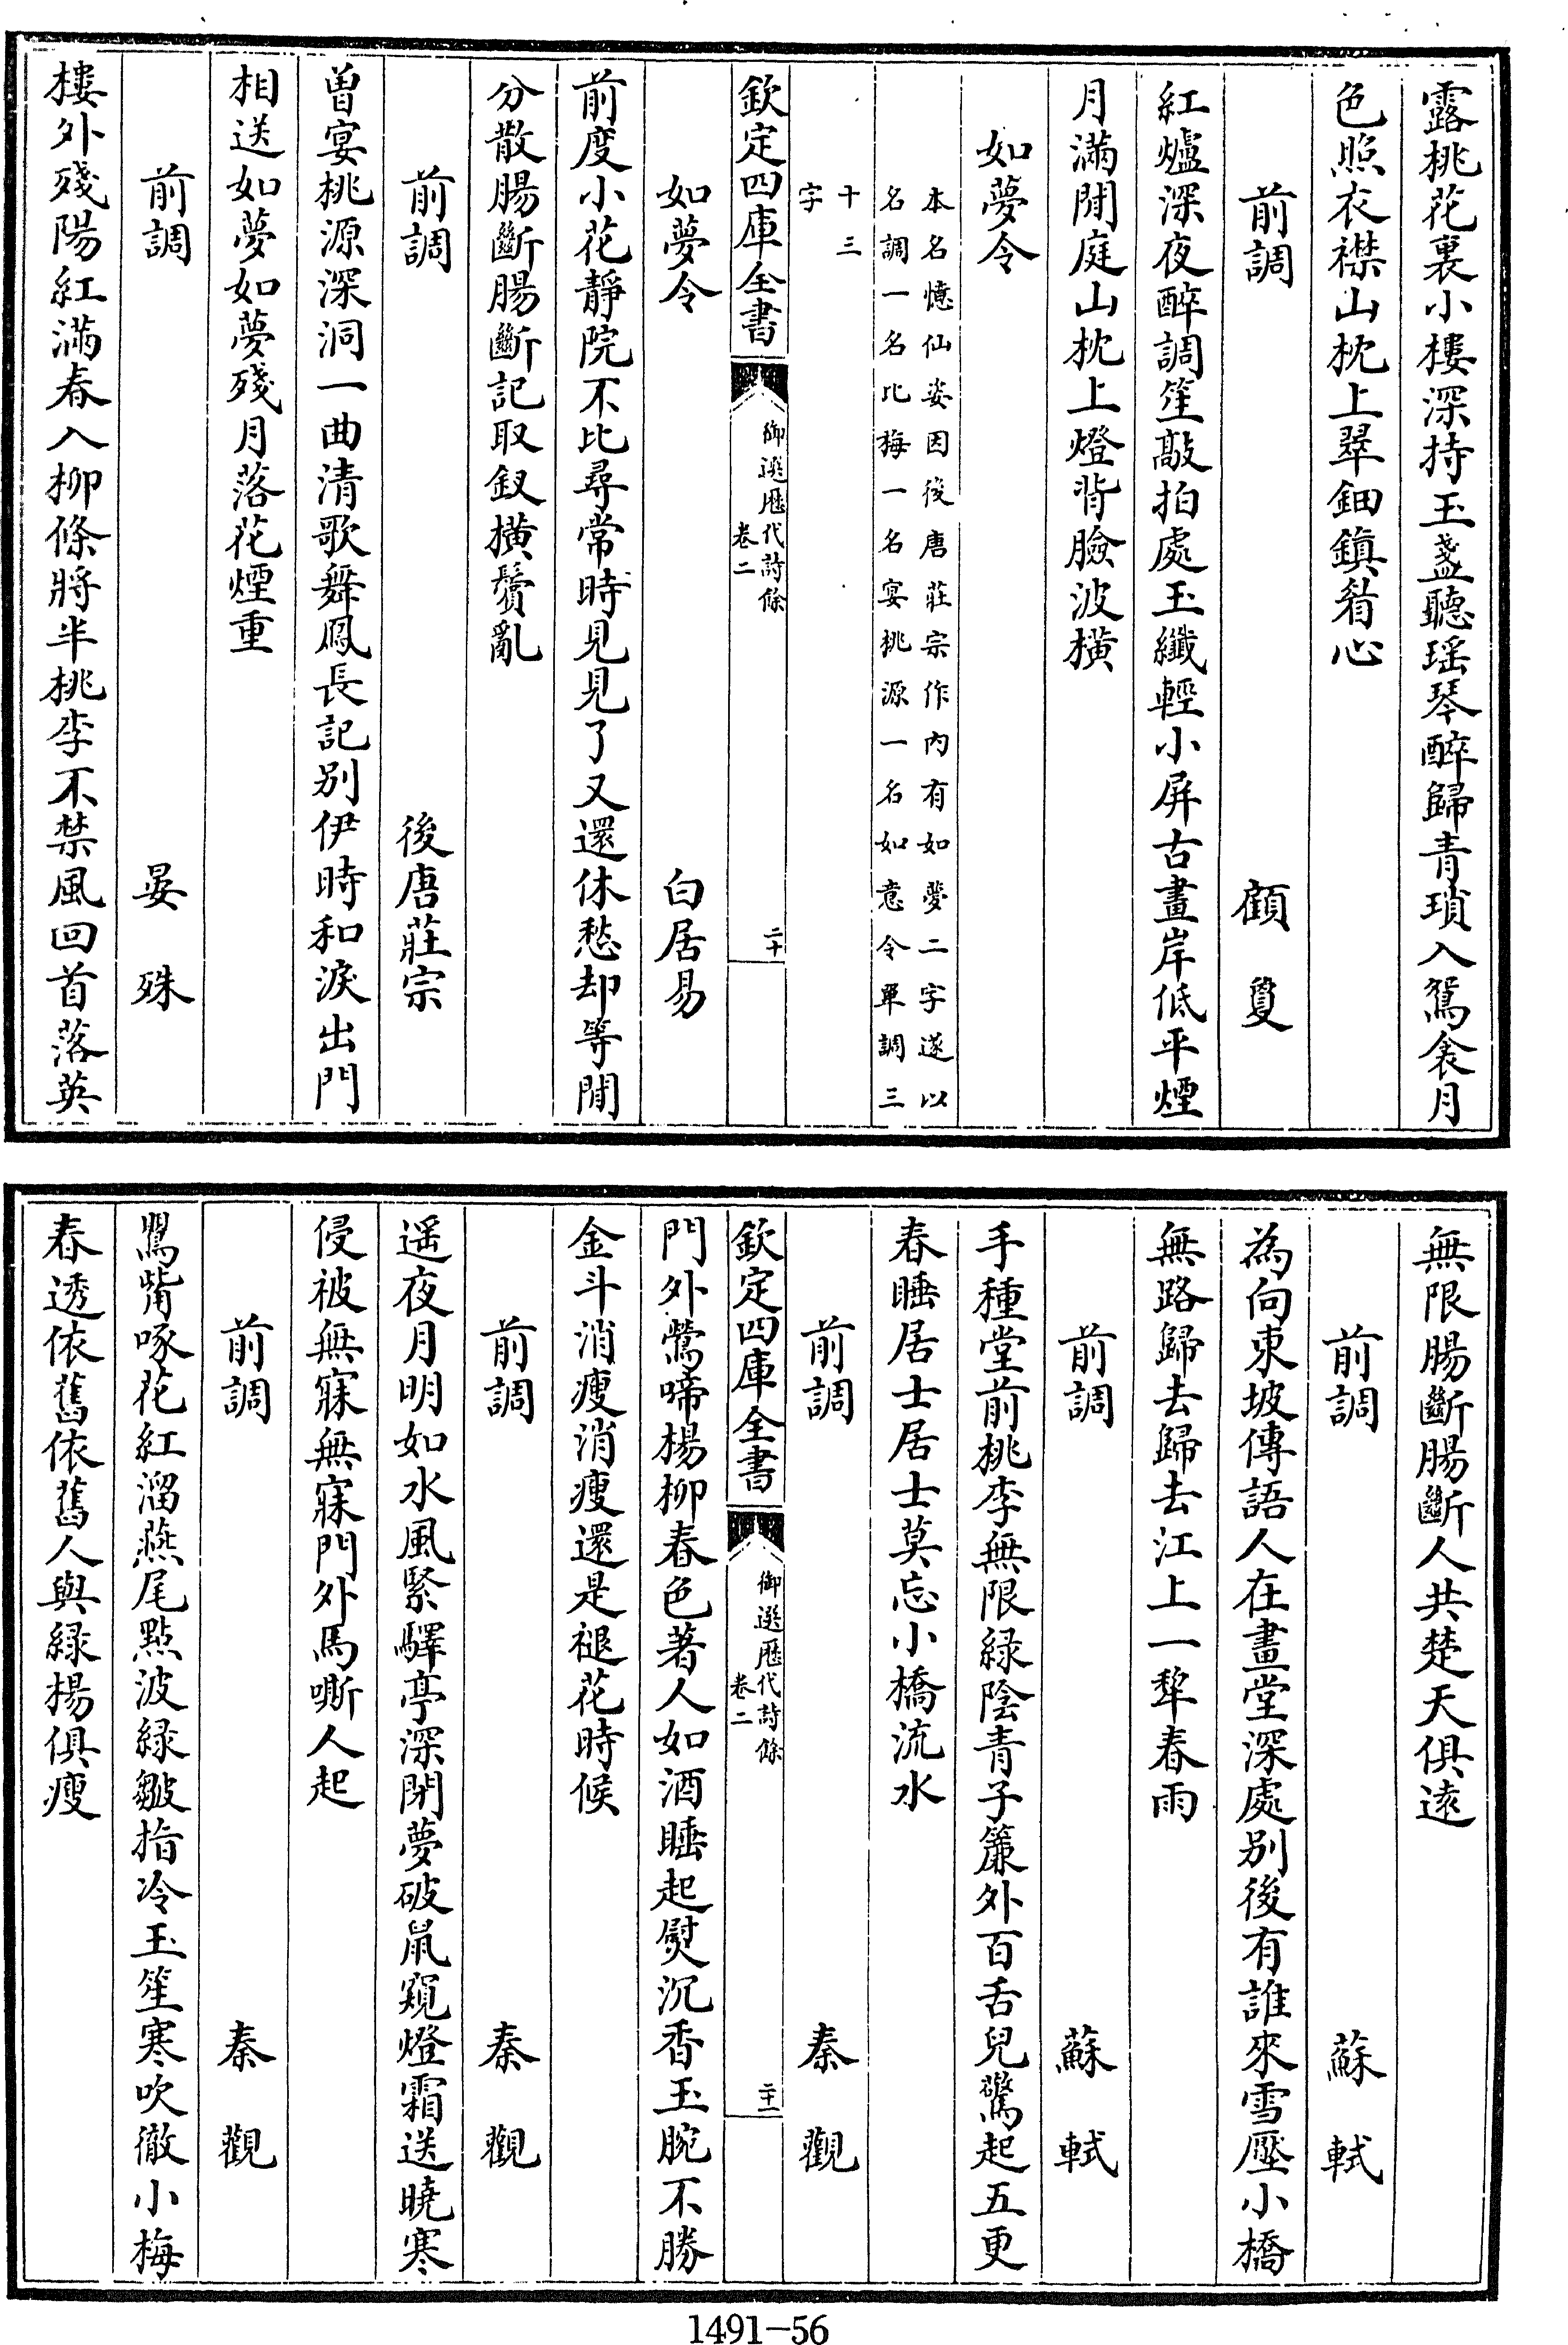 露桃花裏小樓深持玉盞聽瑶琴醉歸青瑣入鴛衾月
色照衣襟山枕上翠鈿鎮眉心
前調　顧夐
紅爐深夜醉調笙敲拍處玉纖輕小屏古畫岸低平煙
月滿閒庭山枕上燈背臉波橫
如夢令
本名憶仙姿因後唐莊宗作內有如夢二字遂以
名調一名比梅一名宴桃源一名如意令單調三
十三
字
欽定四庫全書
御選歷代詩餘
卷二
二十
如夢令　白居易
前度小花靜院不比尋常時見見了又還休愁却等閒
分散腸斷腸斷記取釵橫鬢亂
前調　後唐莊宗
曽宴桃源深洞一曲清歌舞鳳長記别伊時和淚出門
相送如夢如夢殘月落花煙重
前調　晏殊
樓外殘陽紅滿春入柳條將半桃李不禁風回首落英
無限腸斷腸斷人共楚天俱遠
前調　蘇軾
為向東坡傳語人在畫堂深處别後有誰來雪壓小橋
無路歸去歸去江上一犂春雨
前調　蘇軾
手種堂前桃李無限緑陰青子簾外百舌兒驚起五更
春睡居士居士莫忘小橋流水
前調　秦觀
欽定四庫全書
御選歷代詩餘
卷二
二十一
門外鶯啼楊柳春色著人如酒睡起熨沉香玉腕不勝
金斗消瘦消瘦還是褪花時候
前調　秦觀
遥夜月明如水風緊驛亭深閉夢破鼠窺燈霜送曉寒
侵被無寐無寐門外馬嘶人起
前調　秦觀
鶯觜啄花紅溜燕尾點波緑皺指冷玉笙寒吹徹小梅
春透依舊依舊人與緑楊俱瘦
1491-56